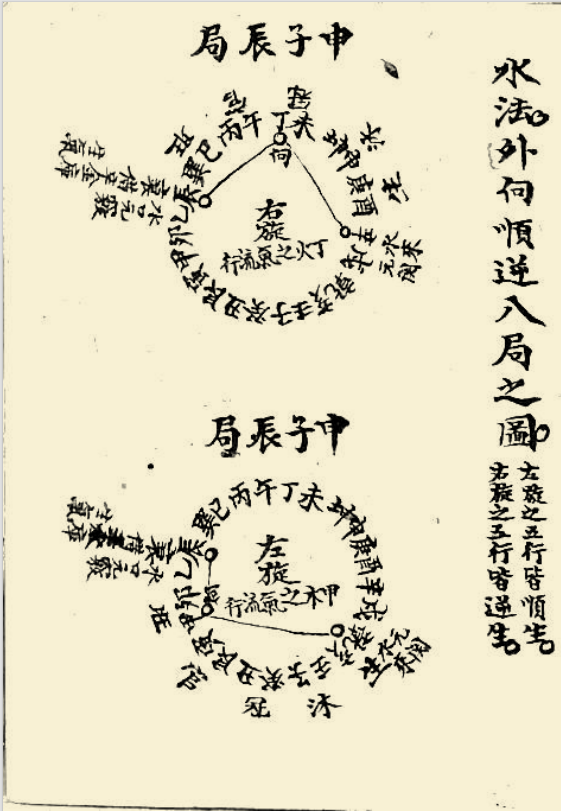 水法外向順逆八局之圖
左旋之五行皆順生
右旋之五行皆逆生
申子辰局
右旋
丁火之氣流行
向
丙午丁未坤申庚酉辛戌乾亥壬子癸丑艮寅甲卯乙辰巽巳
官
冠
沐
生
旺
衰
水口元竅
元關水來
申子辰局
左旋
甲木之氣流行
向
丙午丁未坤申庚酉辛戌乾亥壬子癸丑艮寅甲卯乙辰巽巳
水口元竅
衰
旺
官
冠
沐
生
元關水來